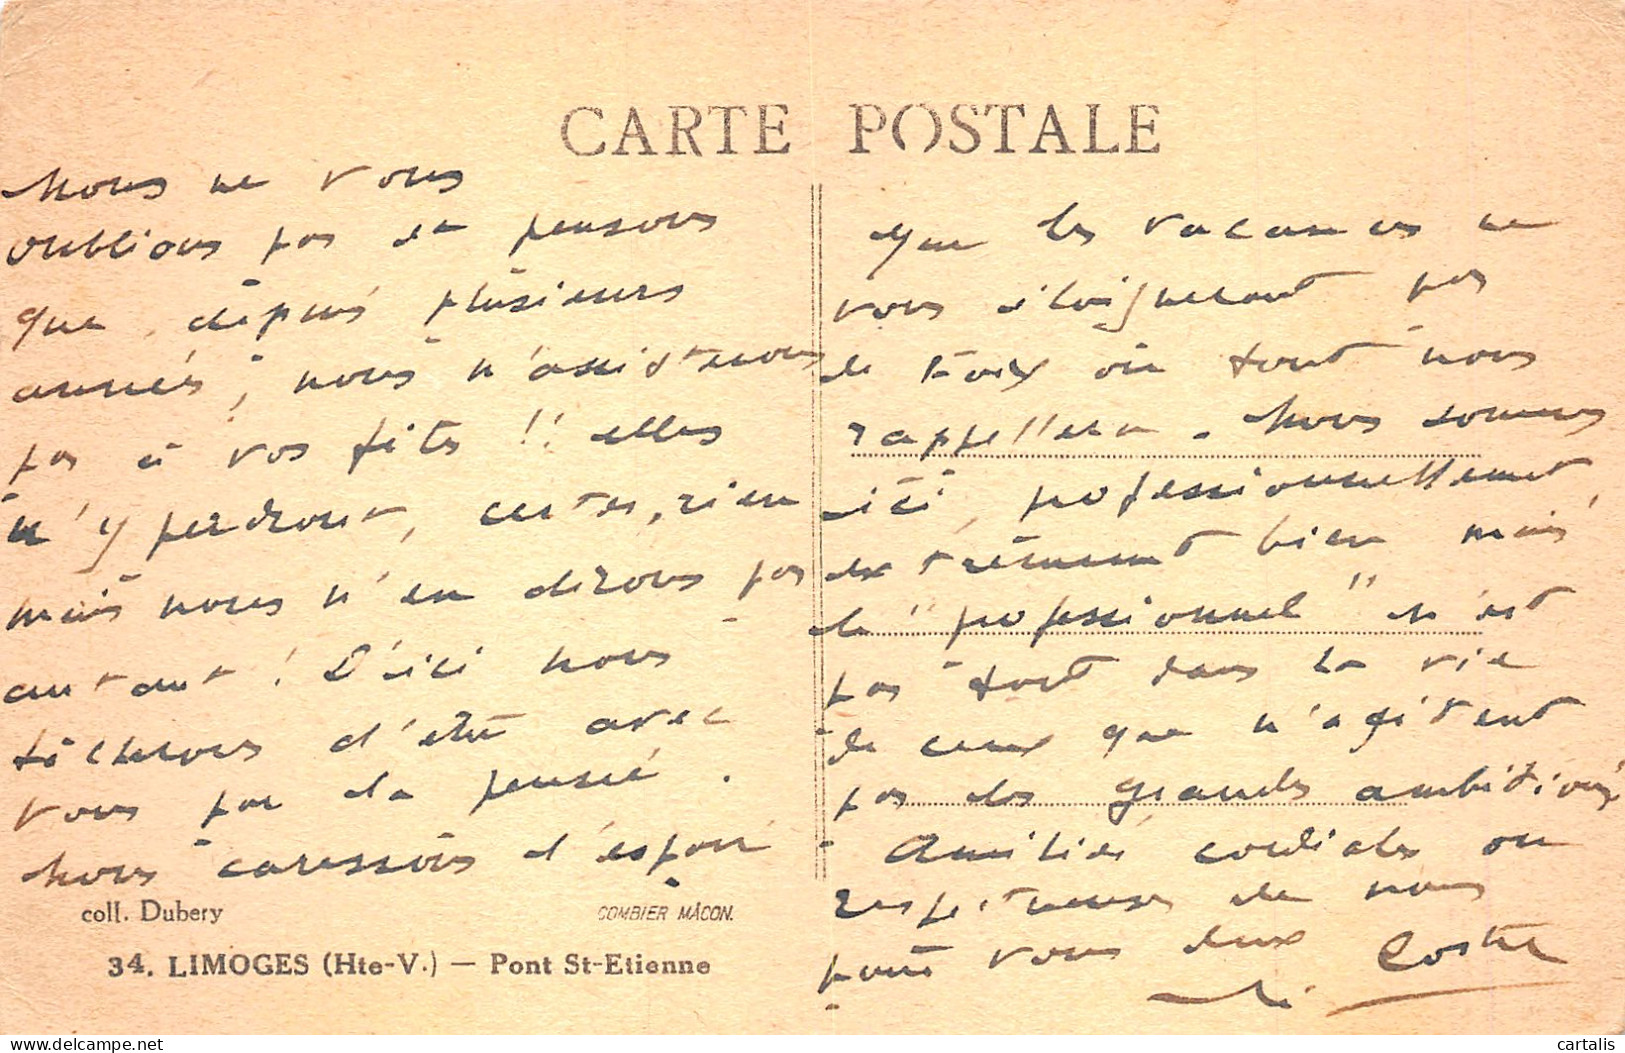 CARTE POSTALE
Nous ne vous
oublions pas en pensons
que, depuis plusieurs
années, nous n'assisterons
pas à vos fêtes !! elles
n'y perdront, certes, rien
mais nous n'en dirons pas
autant ! D'ici nous
tâcherons d'être avec
vous par la pensée.
Nous caressons l'espoir
que les vacances ne
vous éloigneront pas
de où tout nous
rappellera. Nous sommes
ici, professionnellement,
extrêmement bien mais
le "professionnel" n'est
pas tout dans la vie
de ceux que n'agitent
pas les grandes ambitions.
Amitiés cordiales ou
respectueuses de nous
pour vous deux
Coste
coll. Dubery
COMBIER MÂCON.
34. LIMOGES (Hte-V.) — Pont St-Etienne
cartalis